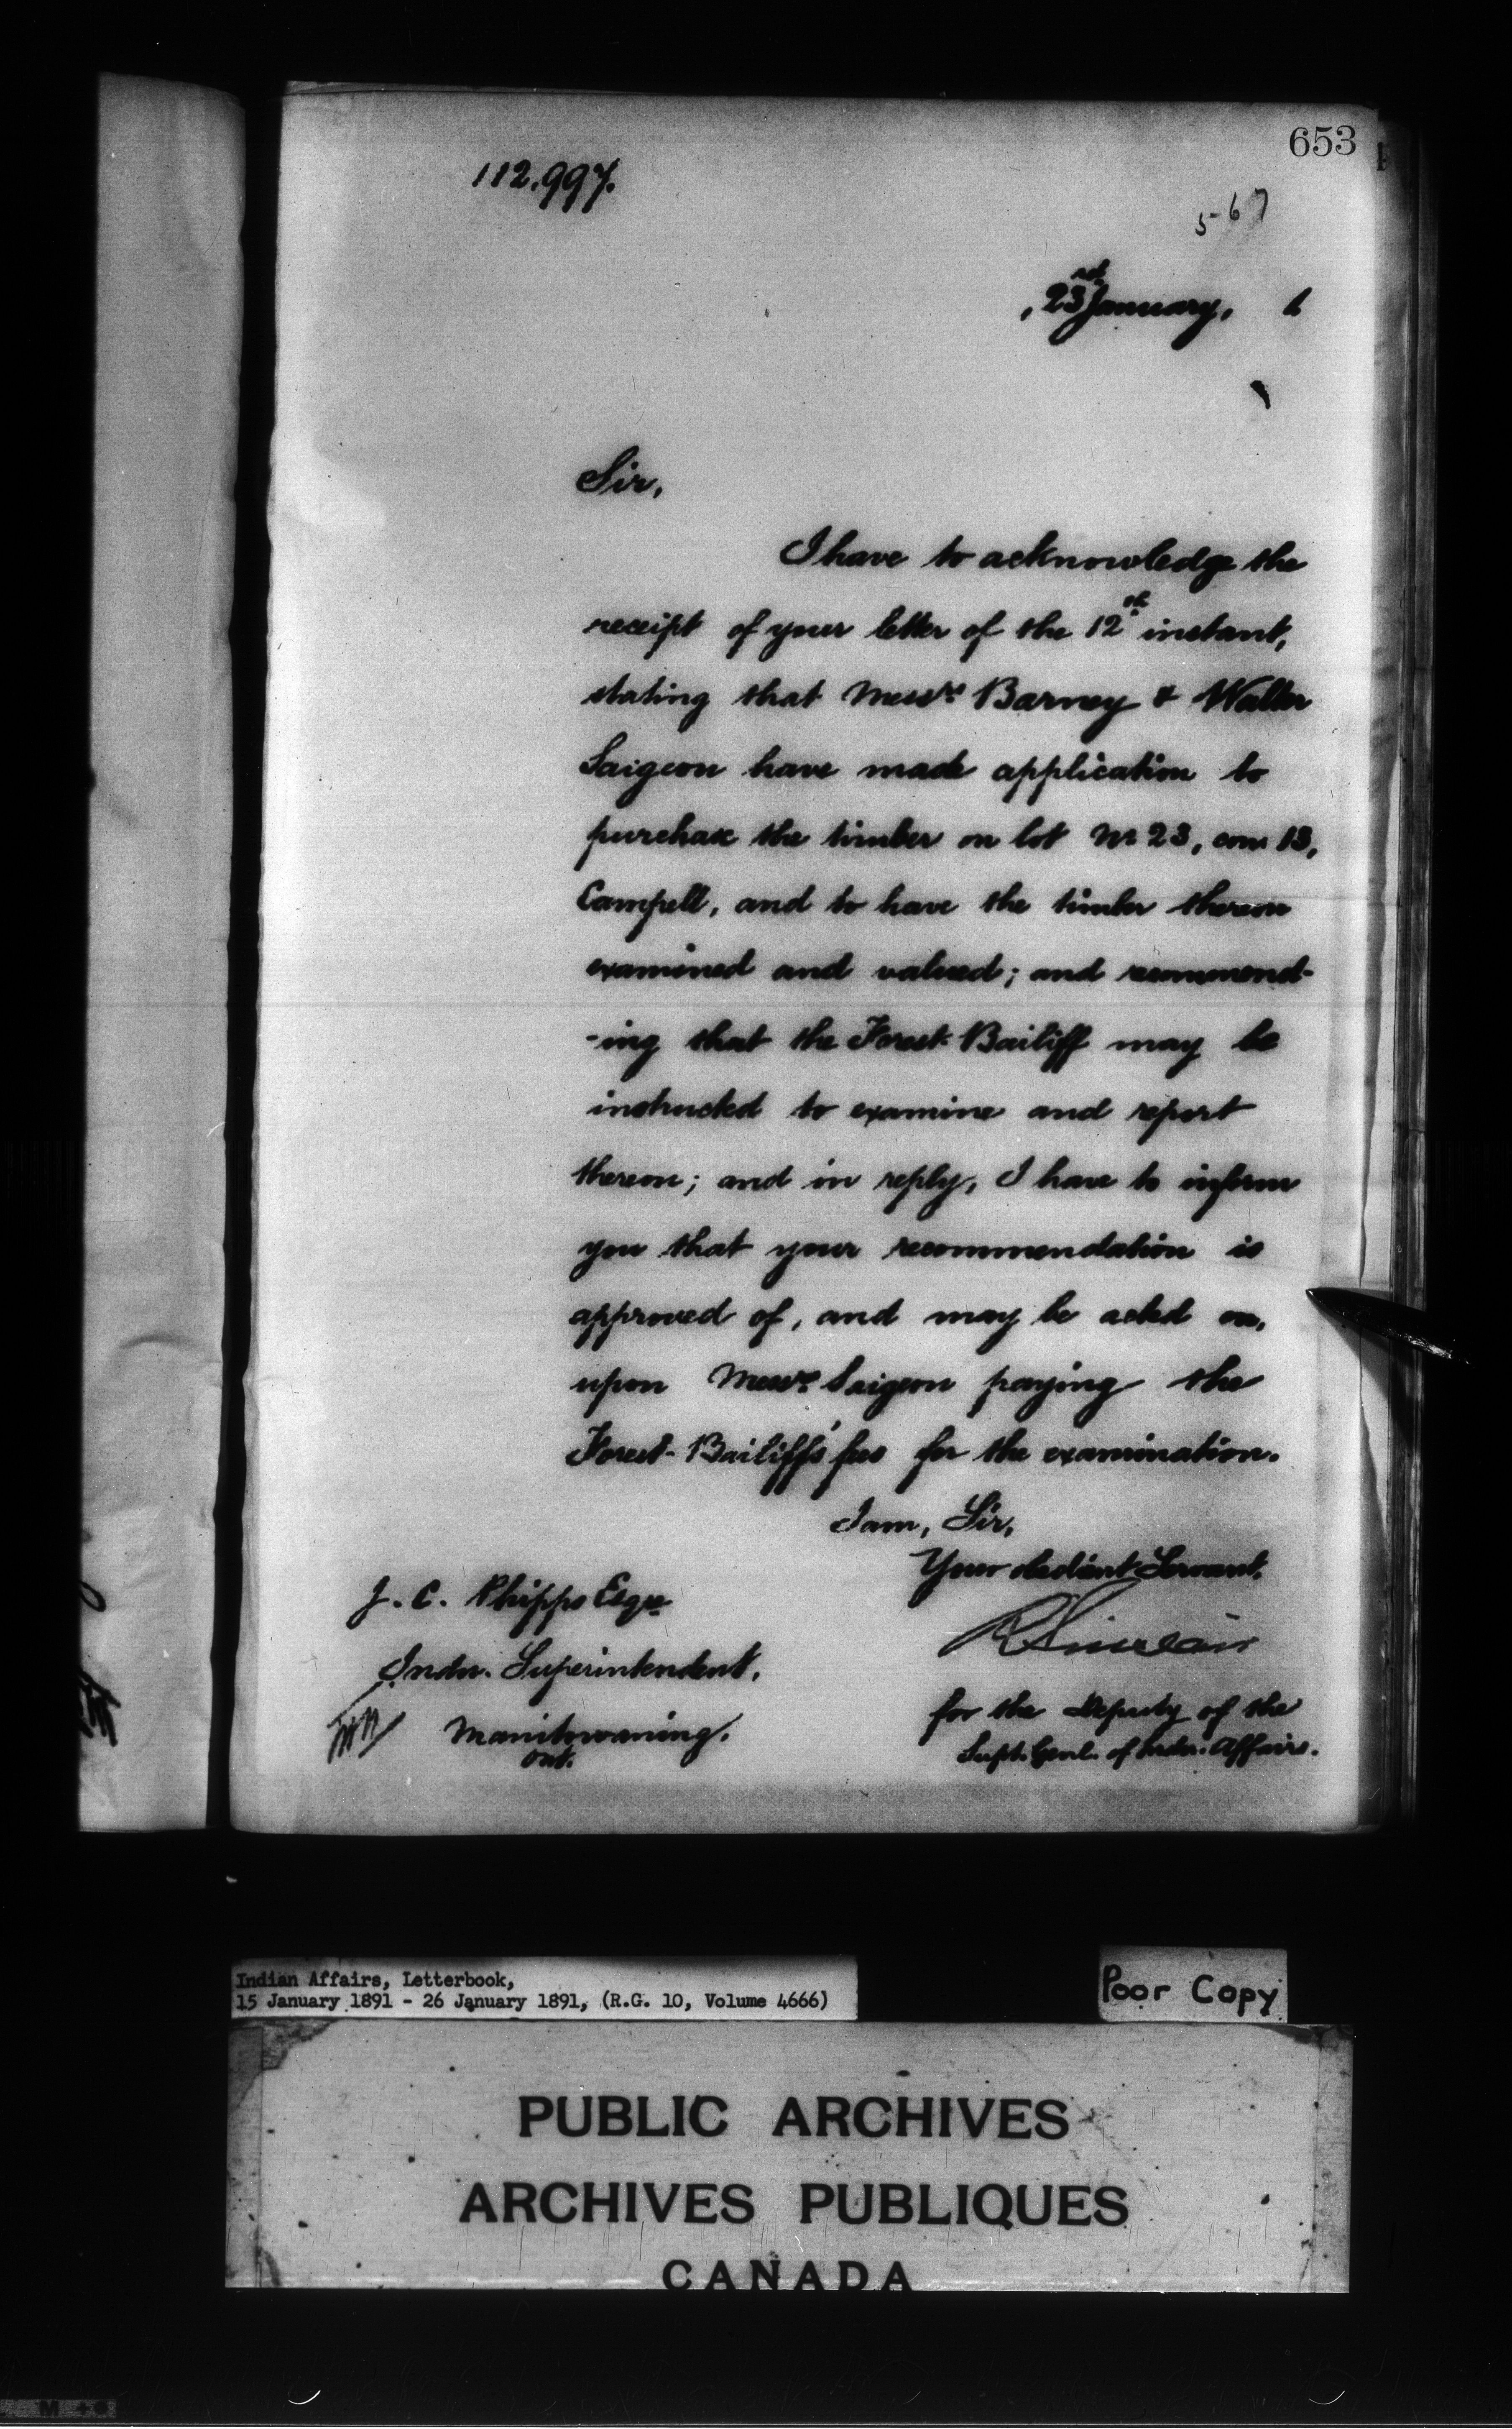 653
112.997.
567
, 23rd January, 1
Sir,
I have to acknowledge the
receipt of your letter of the 12th instant,
stating that Messrs Barney & Walter
Saigeon have made application to
purchase the timber on lot No 23, con 13,
Campell, and to have the timber thereon
examined and valued; and recommend-
-ing that the Forest Bailiff may be
instructed to examine and report
thereon; and in reply, I have to inform
you that your recommendation is
approved of, and may be acted on,
upon Messrs Saigeon paying the
Forest-Bailiff's fees for the examination.
I am, Sir,
Your obedient Servant,
J. C. Phipps Esqre
R Sinclair
Indn. Superintendent,
for the Deputy of the
Manitowaning.
Supt. Genl. of Indn. Affairs.
Ont.
Indian Affairs, Letterbook,
15 January 1891 - 26 January 1891, (R.G. 10, Volume 4666)
Poor Copy
PUBLIC ARCHIVES
ARCHIVES PUBLIQUES
CANADA